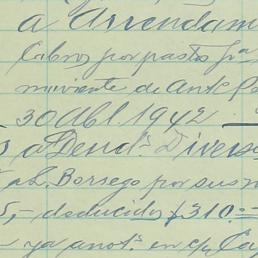 a Arrendam
Cobros por pastos pa
miviente de Ant
30 Abl. 1942
a Deud.s Divers
a L. Borrego por sus
5,- deducidos $310.=
ya anot. en c/